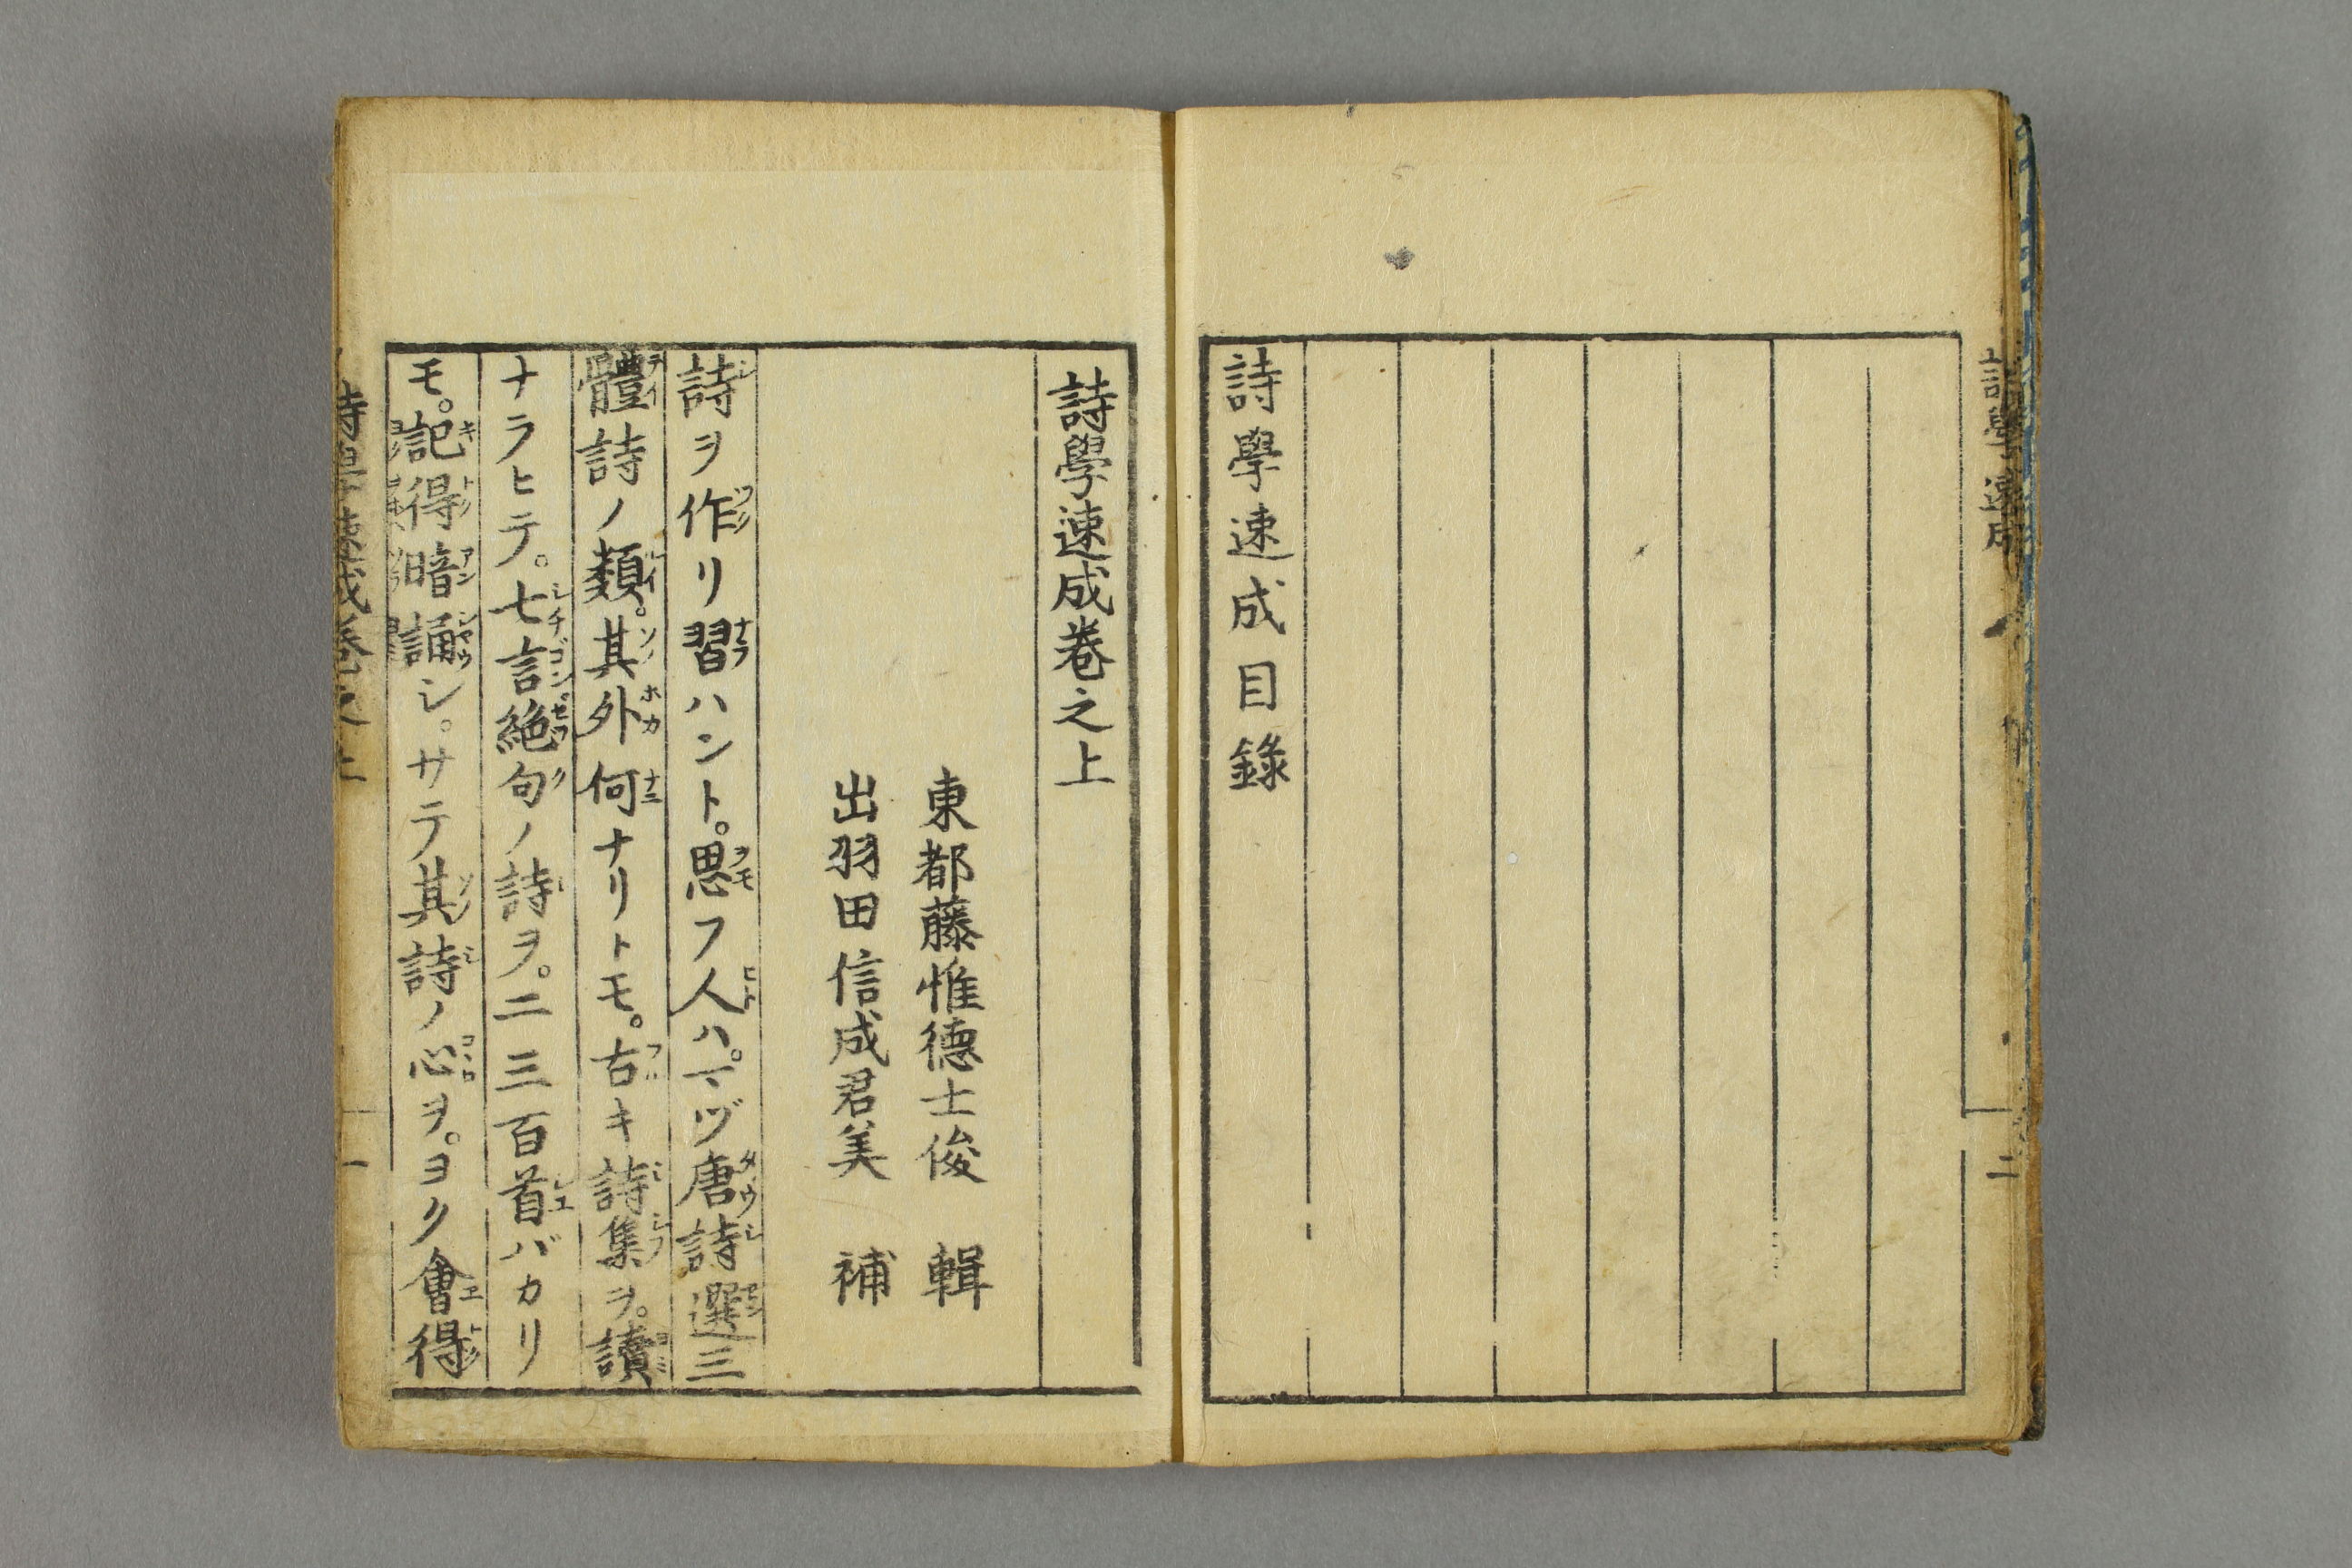 詩學速成
二
詩學速成目錄
詩學速成卷之上
東都藤惟德士俊 輯
出羽田信成君美 補
詩ヲ作リ習ハント。思フ人ハ。マヅ唐詩選三
體詩ノ類。其外何ナリトモ。古キ詩集ヲ。讀
ナラヒテ。七言絶句ノ詩ヲ。二三百首バカリ
モ。記得暗誦シ。サテ其詩ノ心ヲ。ヨク會得
詩學速成卷之上
一